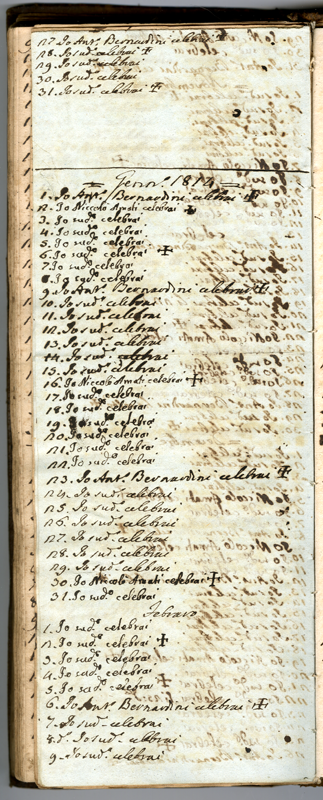 27. Io Ant.o Bernardini celebrai ✠
28. Io sud.o celebrai ✠
29. Io sud.o celebrai
30. Io sud.o celebrai
31. Io sud.o celebrai ✠
Genn.o 1812
1. Io Ant.o Bernardini celebrai ✠
2. Io Niccolò Amati celebrai ✠
3. Io sud.o celebrai
4. Io sud.o celebrai
5. Io sud.o celebrai
6. Io sud.o celebrai ✠
7. Io sud.o celebrai
8. Io sud.o celebrai
9. Io Ant.o Bernardini celebrai ✠
10. Io sud.o celebrai
11. Io sud.o celebrai
12. Io sud.o celebrai
13. Io sud.o celebrai
14. Io sud.o celebrai
15. Io sud.o celebrai
16. Io Niccolò Amati celebrai ✠
17. Io sud.o celebrai
18. Io sud.o celebrai
19. Io sud.o celebrai
20. Io sud.o celebrai
21. Io sud.o celebrai
22. Io sud.o celebrai
23. Io Ant.o Bernardini celebrai ✠
24. Io sud.o celebrai
25. Io sud.o celebrai
26. Io sud.o celebrai
27. Io sud.o celebrai
28. Io sud.o celebrai
29. Io sud.o celebrai
30. Io Niccolò Amati celebrai ✠
31. Io sud.o celebrai
Febraro
1. Io sud.o celebrai
2. Io sud.o celebrai ✠
3. Io sud.o celebrai
4. Io sud.o celebrai
5. Io sud.o celebrai ✠
6. Io Ant.o Bernardini celebrai ✠
7. Io sud.o celebrai
8. Io sud.o celebrai
9. Io sud.o celebrai